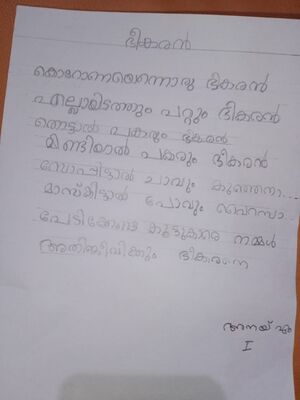 ഭീകരൻ
കൊറോണയെന്നൊരു ഭീകരൻ
എല്ലാമിടത്തും പറ്റും ഭീകരൻ
തൊട്ടാൽ പകരും ഭീകരൻ
മിണ്ടിയാൽ പകരും ഭീകരൻ
സോപ്പിട്ടാൽ ചാവും കുഞ്ഞനാ...
മാസ്കിട്ടാൽ പോവും പൈസാ...
പേടിക്കേണ്ട കൂട്ടുകാരെ നമ്മൾ
അതിജീവിക്കും ഭീകരനെ
അനയ് എം
I